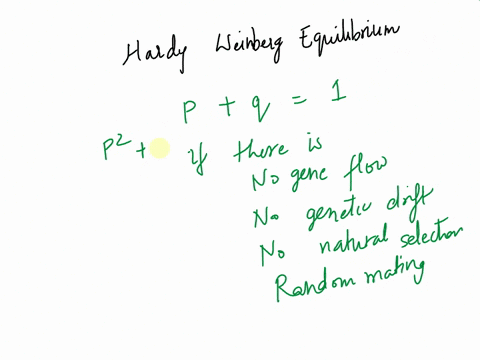 Hardy Weinberg Equilibrium
p + q = 1
p² +
if there is
No gene flow
No genetic drift
No natural selection
Random mating